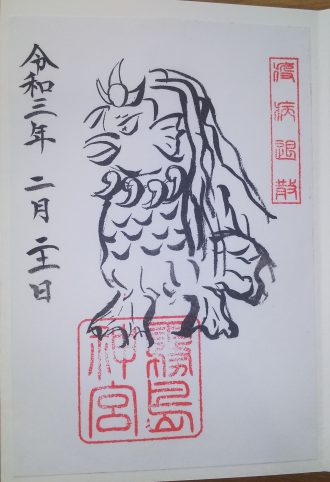 疫病退散
霧島
神宮
令和三年 二月